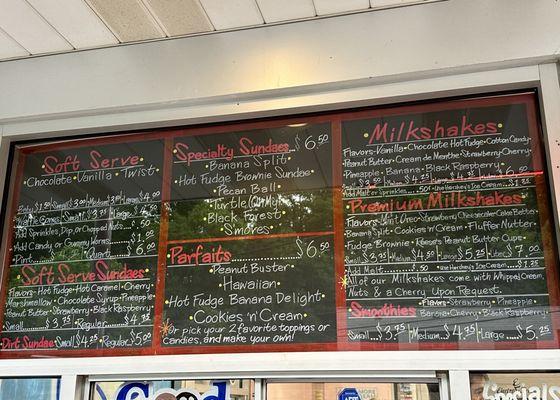 Soft Serve
Chocolate • Vanilla • Twist
Add Sprinkles, Dip, or Chopped Nuts
Add Candy or Gummy Worms
Pint Quart
Soft Serve Sundaes
Flavors • Hot Fudge • Hot Caramel • Cherry
Marshmallow • Chocolate Syrup • Pineapple
Peanut Butter • Strawberry • Black Raspberry
Small $3.75 Regular $4.75
Dirt Sundae Small $4.25 Regular $5.00
Specialty Sundaes $6.50
Banana Split
Hot Fudge Brownie Sundae
Pecan Ball
Turtle (Oh My)
Black Forest
S'mores
Parfaits $6.50
Peanut Buster
Hawaiian
Hot Fudge Banana Delight
Cookies 'n Cream
Or pick your 2 favorite toppings or
Candies, and make your own!
Milkshakes
Flavors • Vanilla • Chocolate • Hot Fudge • Cotton Candy
Peanut Butter • Creme de Menthe • Strawberry • Cherry
Pineapple • Banana • Black Raspberry
Add Malt or Sprinkles .50¢ Use Hershey's Ice Cream
Premium Milkshakes
Flavors • Mint Oreo • Strawberry Cheesecake • Cake Batter
Banana Split • Cookies 'n Cream • Fluffer Nutter
Fudge Brownie • Reese's Peanut Butter Cups
Small $4.25 Medium $5.25 Large
Add Malt .50¢ Use Hershey's Ice Cream $1.25
All of our Milkshakes come with Whipped Cream,
Nuts & a Cherry Upon Request.
Smoothies Flavors • Strawberry • Pineapple
Banana • Cherry • Black Raspberry
Small $3.75 Medium $4.75 Large $5.25
Good
Specials